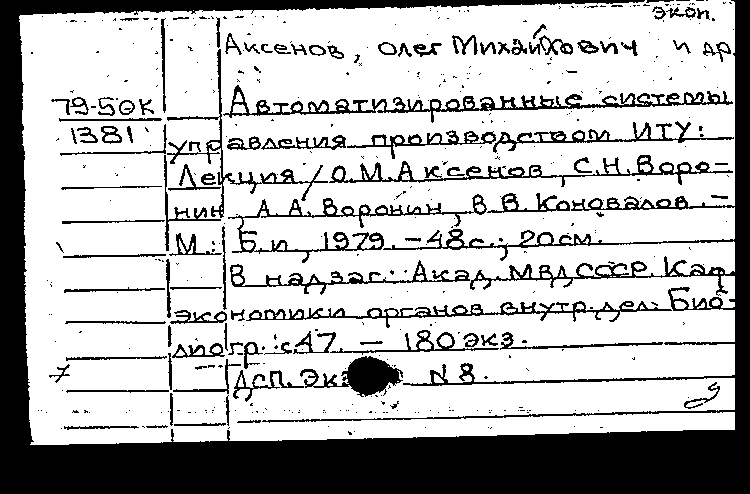 экон.
Аксенов, Олег Михайлович и др.
79-50К Автоматизированные системы
1381 управления производством ИТУ:
Лекция / О.М.Аксенов, С.Н.Воро-
нин, А.А.Воронин, В.В.Коновалов. —
М.: Б.и., 1979. — 48с.; 20см.
В надзаг.: Акад. МВД СССР. Каф.
экономики органов внутр. дел. Биб-
лиогр.: с47. — 180 экз.
ДСП. Экз N 8.